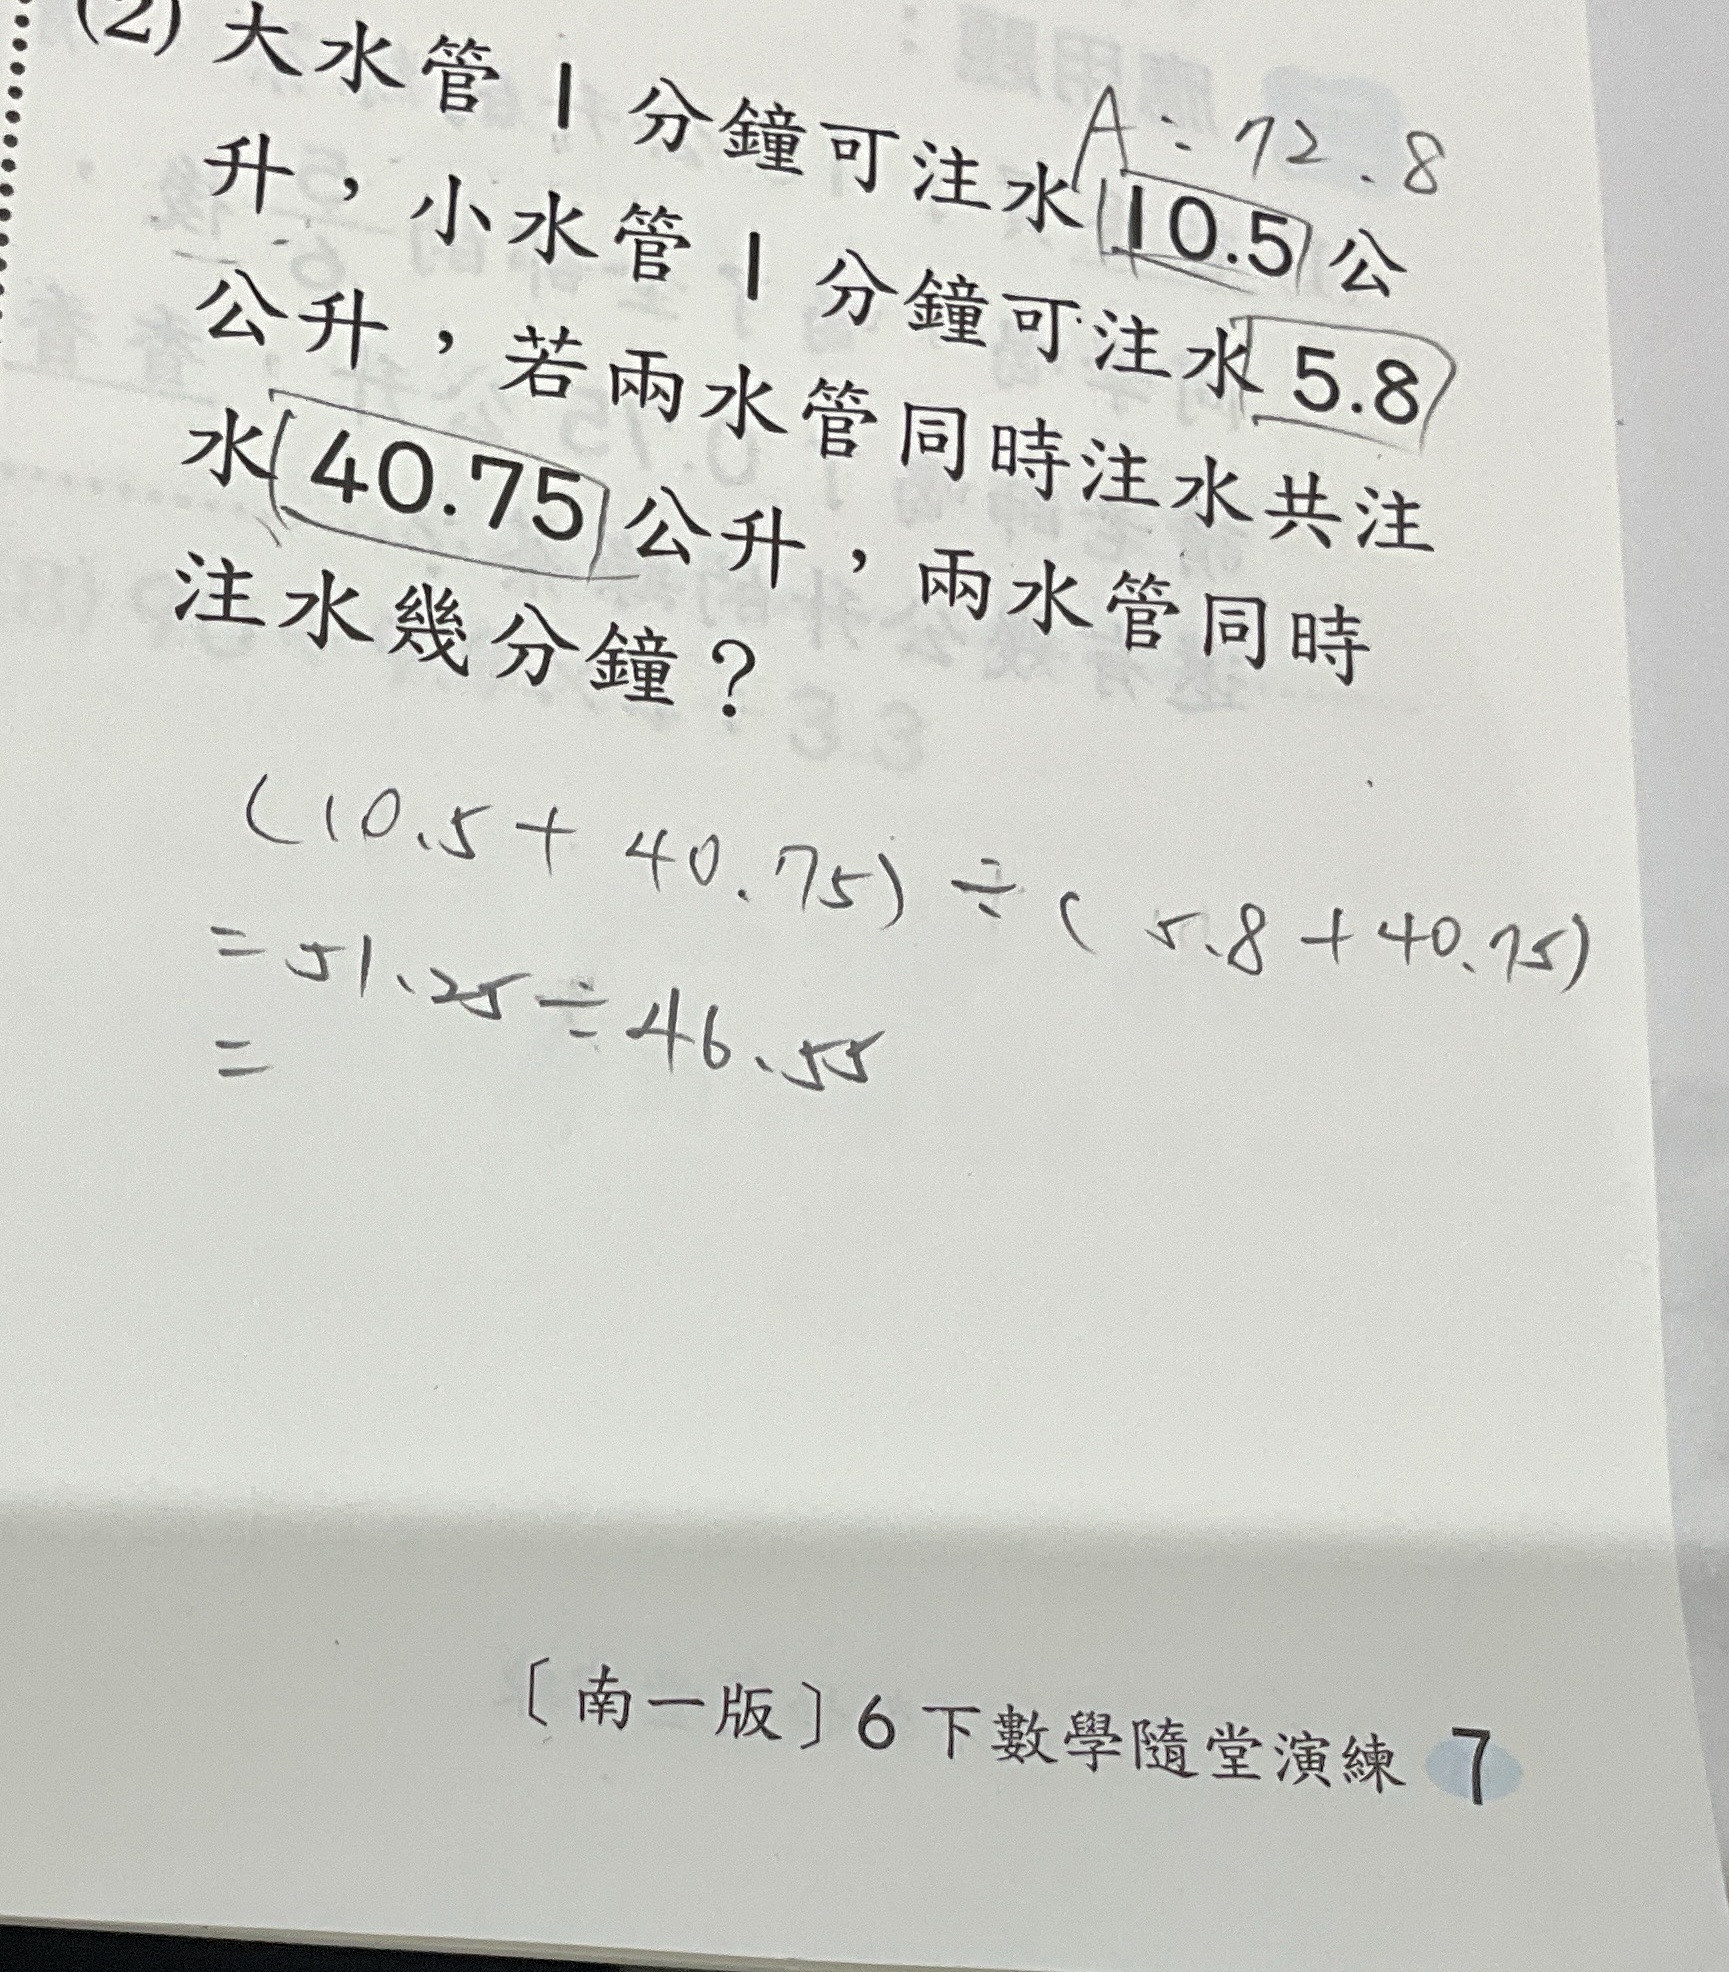 (2) 大水管 1 分鐘可注水 10.5 公
升，小水管 1 分鐘可注水 5.8
公升，若兩水管同時注水共注
水 40.75 公升，兩水管同時
注水幾分鐘？
A：72.8
(10.5+40.75)÷(5.8+40.75)
=51.25÷46.55
=
〔南一版〕6下數學隨堂演練 7